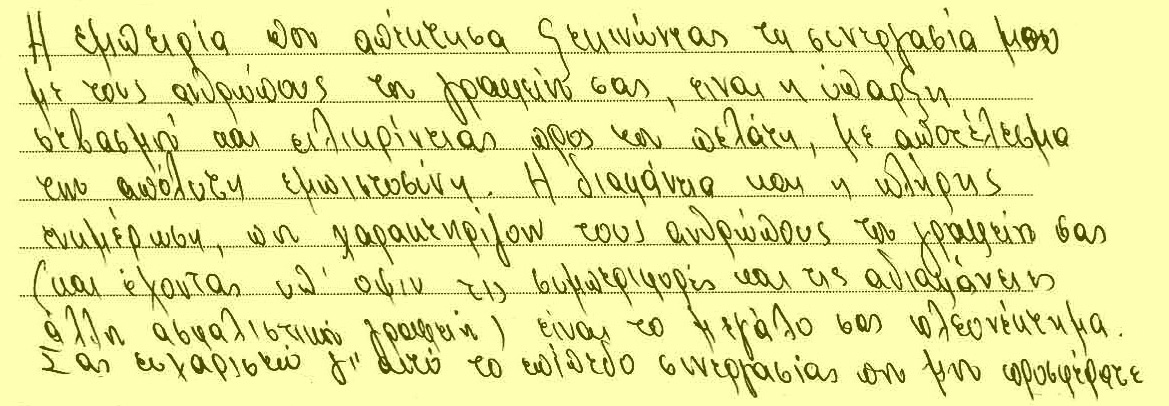 Η εμπειρία που απέκτησα ξεκινώντας τη συνεργασία μου
με τους ανθρώπους του γραφείου σας, είναι η ύπαρξη
σεβασμού και ειλικρίνειας προς τον πελάτη, με αποτέλεσμα
την απόλυτη εμπιστοσύνη. Η διαφάνεια και η πλήρης
ενημέρωση, που χαρακτηρίζουν τους ανθρώπους του γραφείου σας
(και έχοντας υπ' όψιν τις συμπεριφορές και τις αδιαφάνειες
άλλου ασφαλιστικού γραφείου) είναι το μεγάλο σας πλεονέκτημα.
Σας ευχαριστώ γι' αυτό το επίπεδο συνεργασίας που μου προσφέρατε